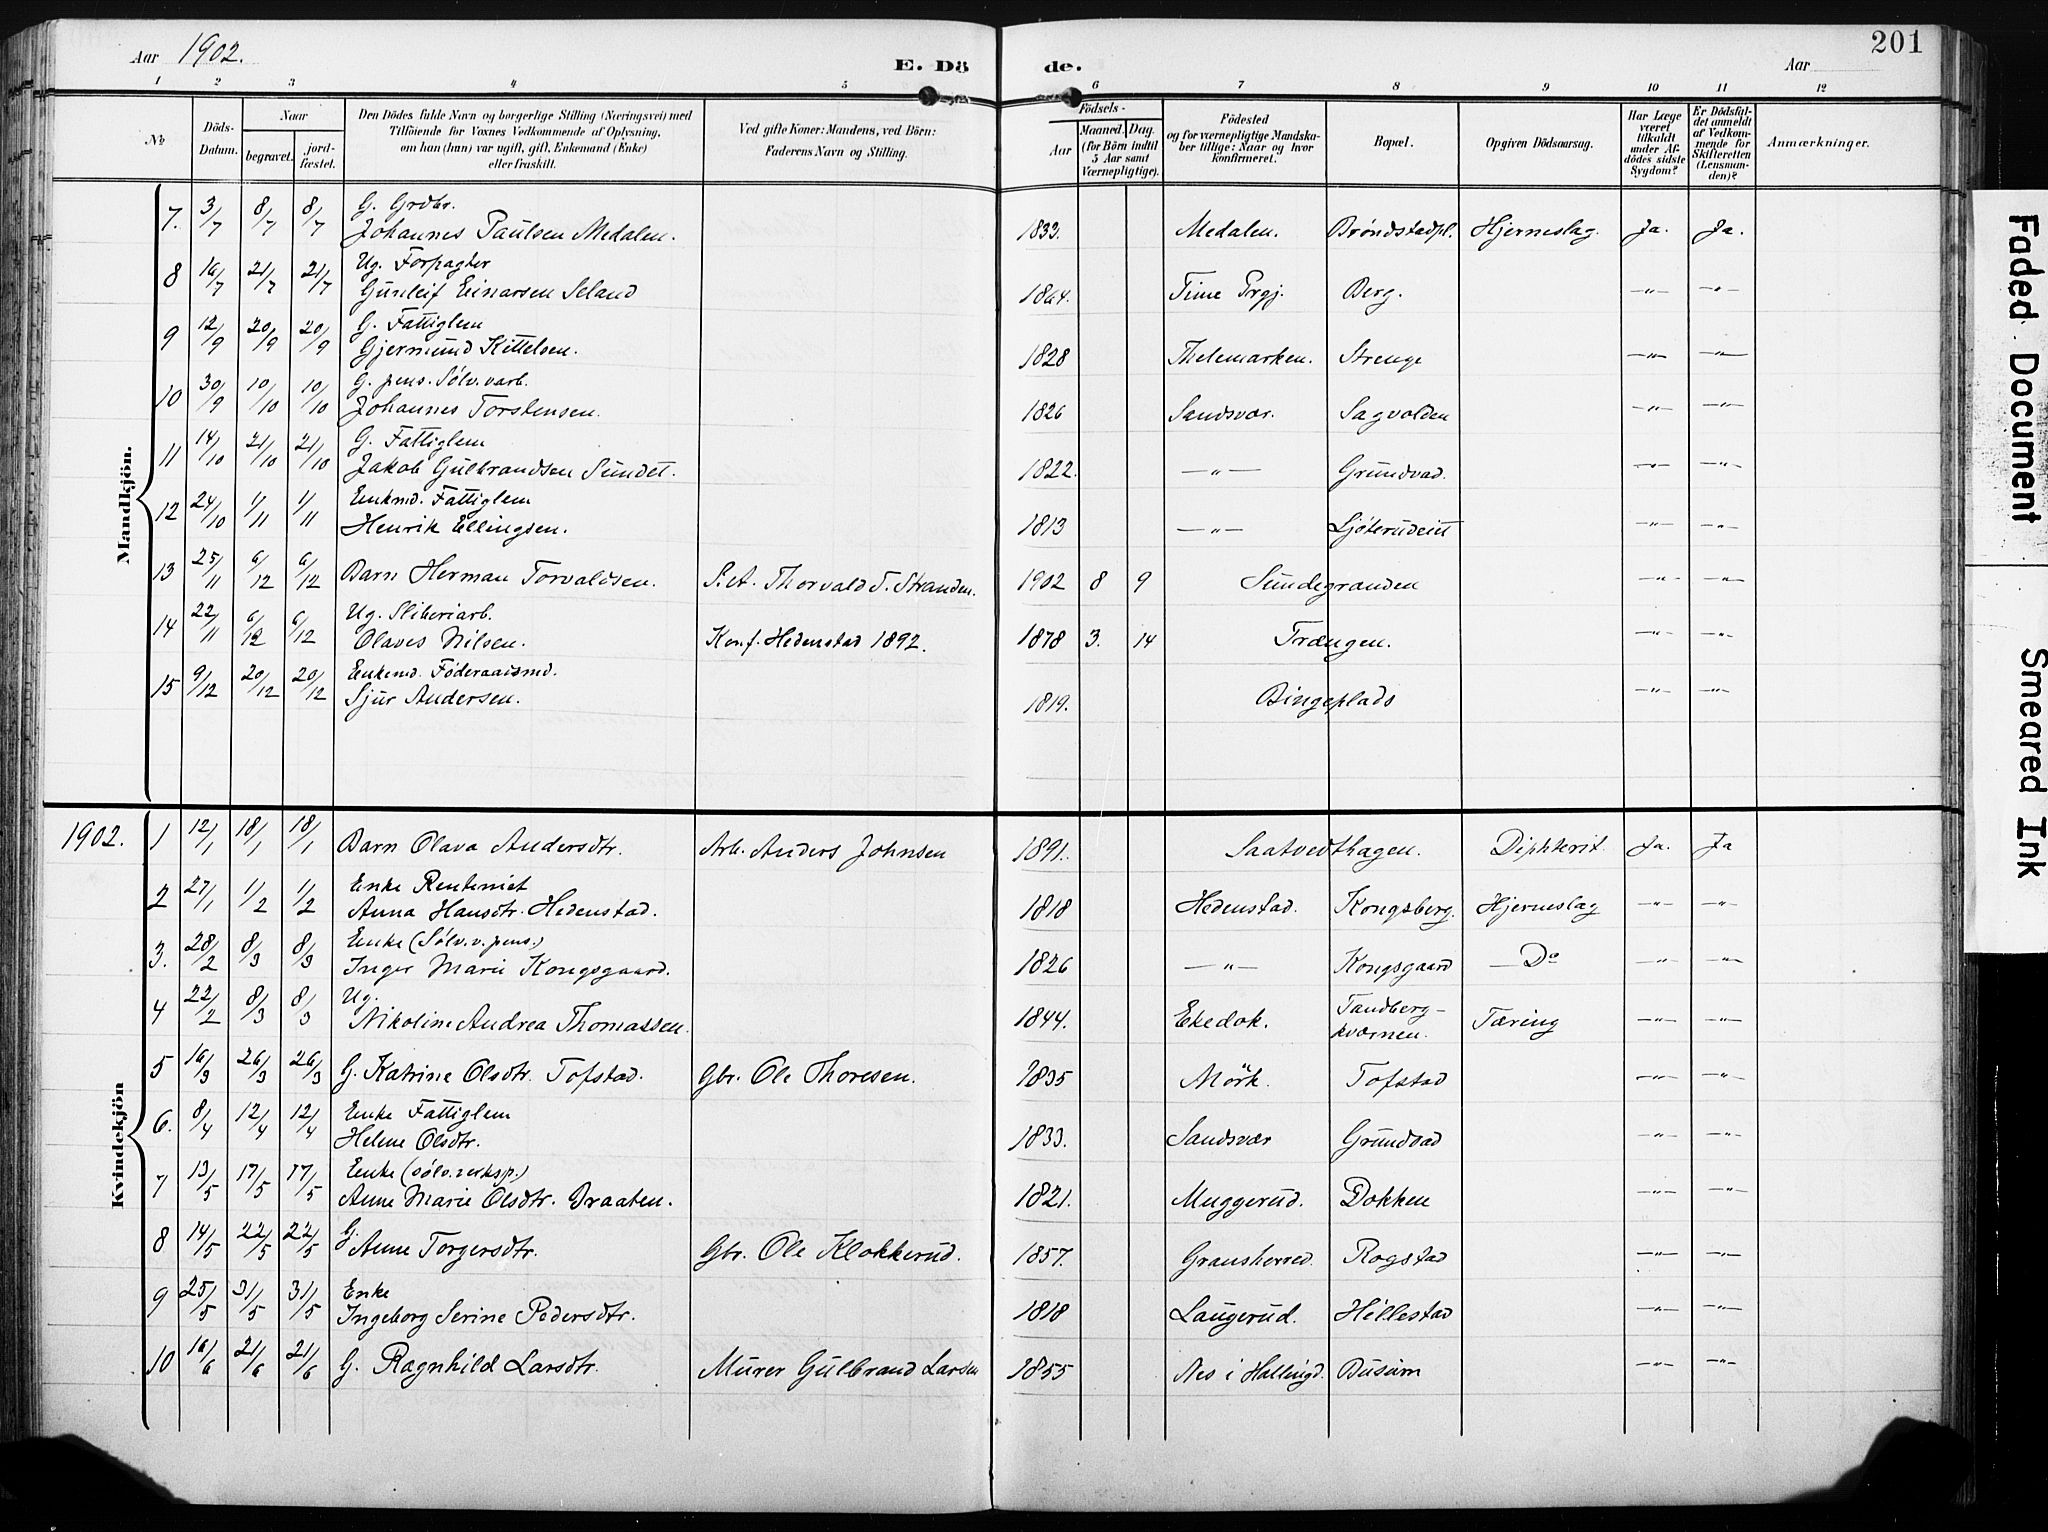 Aar 1902.
E. Dö
de.
Aar
201
1 2 3 4 5 6 7 8 9 10 11 12
No
Döds-Datum.
Naar
begravet.
jord-fæstet.
Den Dödes fulde Navn og borgerlige Stilling (Næringsvei) med
Tilföiende for Voxnes Vedkommende af Oplysning,
om han (hun) var ugift, gift, Enkemand (Enke)
eller fraskilt.
Ved gifte Koner: Mandens, ved Börn:
Faderens Navn og Stilling.
Födsels-
Aar
Maaned. Dag.
(for Börn indtil
5 Aar samt
Værnepligtige).
Födested
og for værnepligtige Mandska-
ber tillige: Naar og hvor
konfirmeret.
Bopæl.
Opgiven Dödsaarsag.
Har Læge
været
tilkaldt
under Af-
dödes sidste
Sygdom?
Er Dödsfal-
det anmeldt
af Vedkom-
mende for
Skifteretten
(Lensman-
den)?
Anmærkninger.
Mandkjön.
G. Grdbr.
7. 3/7 8/7 8/7 Johannes Paulsen Medalen. 1833. Medalen. Brøndstadpl. Hjerneslag. Ja. Ja.
Ug. Forpagter
8 16/7 21/7 21/7 Gunleif Einarsen Seland 1864. Time Prgj. Berg. —"— —"—
G. Fattiglem
9 12/9 20/9 20/9 Gjermund Kittelsen. 1828 Thelemarken. Strenge —"— —"—
G. pens. Sølv.varb.
10 30/9 10/10 10/10 Johannes Torstensen. 1826 Sandsvær. Sagvolden —"— —"—
G. Fattiglem
11 14/10 21/10 21/10 Jakob Gulbrandsen Sundet. 1822. —"— Grundvad. —"— —"—
Enkmd. Fattiglem
12 24/10 1/11 1/11 Henrik Ellingsen. 1813 —"— —"— —"—
13 25/11 6/12 6/12 Barn Herman Torvaldsen. Thorvald T. Stranden. 1902 8 9 Sundegranden —"— —"—
Ug. Sliberiarb.
14 22/11 6/12 6/12 Olaves Nilsen. Konf. Hedenstad 1892. 1878 3. 14 Trængen. —"— —"—
Enkemd. Føderaadsmd.
15 9/12 20/12 20/12 Sjur Andersen. 1819. Bingeplads —"— —"—
Kvindekjön
1902. 1 12/1 18/1 18/1 Barn Olava Andersdtr. Arb. Anders Johnsen 1891. Saatvedthagen. Diphterit. Ja. Ja
Enke Rentenist
2 27/1 1/2 1/2 Anna Hansdtr. Hedenstad. 1818 Hedenstad. Kongsberg. Hjerneslag —"— —"—
Enke (Sølv.v.pens.)
3. 28/2 8/3 8/3 Inger Marie Kongsgaard. 1826 —"— Kongsgaard — Do —"— —"—
Ug.
4 22/2 8/3 8/3 Nikoline Andrea Thomassen. 1844. Ekedok. Tandberg-
kværnen. Tæring —"— —"—
5 16/3 26/3 26/3 G. Katrine Olsdtr. Tofstad. Gbr. Ole Thoresen. 1835 Mörk. Tofstad —"— —"—
Enke Fattiglem
6. 8/4 12/4 12/4 Helene Olsdtr. 1833. Sandsvær Grundvad —"— —"—
Enke (sølv.verksp.)
7 13/5 17/5 17/5 Anne Marie Olsdtr. Braaten. 1821. Muggerud. Dokken —"— —"—
G.
8 14/5 22/5 22/5 Anne Torgersdtr. Gbr. Ole Klokkerud. 1857. Gransherred. Rogstad —"— —"—
Enke
9 25/5 31/5 31/5 Ingeborg Serine Pedersdtr. 1818 Laugerud. Hellestad —"— —"—
10 16/6 21/6 21/6 G. Ragnhild Larsdtr. Murer Gulbrand Larsen 1855 Nes i Hallingd. Busum —"— —"—
Faded Document
Smeared Ink